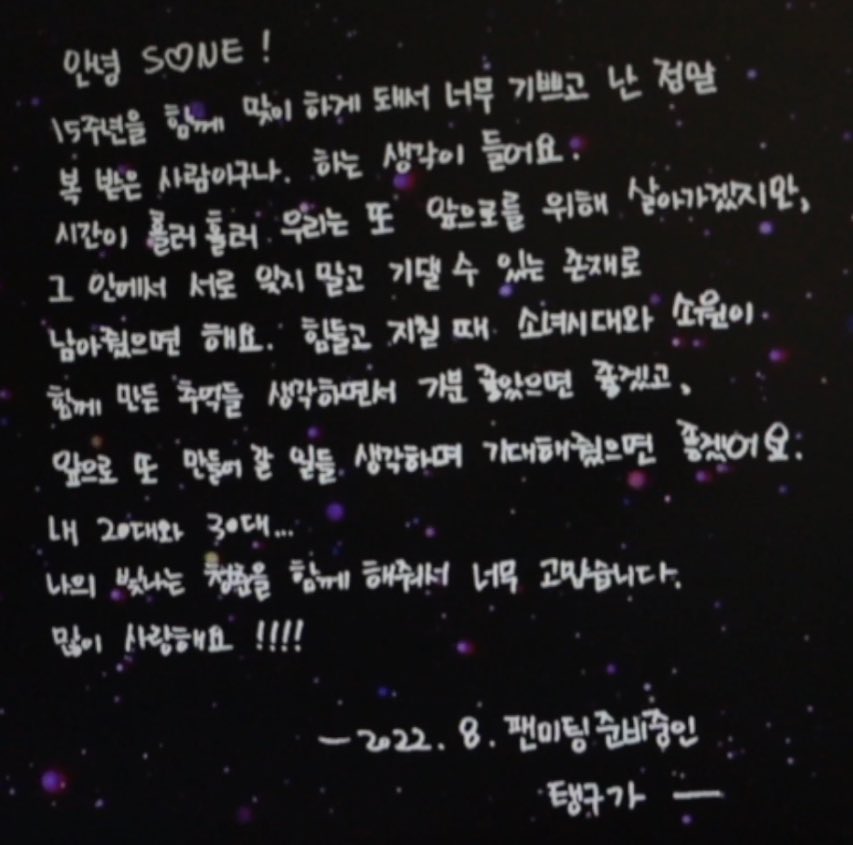 안녕 S♡NE !
15주년을 함께 맞이 하게 돼서 너무 기쁘고 난 정말
복 받은 사람이구나. 하는 생각이 들어요.
시간이 흘러 흘러 우리는 또 앞으로를 위해 살아가겠지만,
그 안에서 서로 잊지 말고 기댈 수 있는 존재로
남아줬으면 해요. 힘들고 지칠 때 소녀시대와 소원이
함께 만든 추억들 생각하면서 기분 좋았으면 좋겠고,
앞으로 또 만들어 갈 일들 생각하며 기대해줬으면 좋겠어요.
내 20대와 30대...
나의 빛나는 청춘을 함께 해줘서 너무 고맙습니다.
많이 사랑해요 !!!!
- 2022. 8. 팬미팅 준비중인
탱구가 -